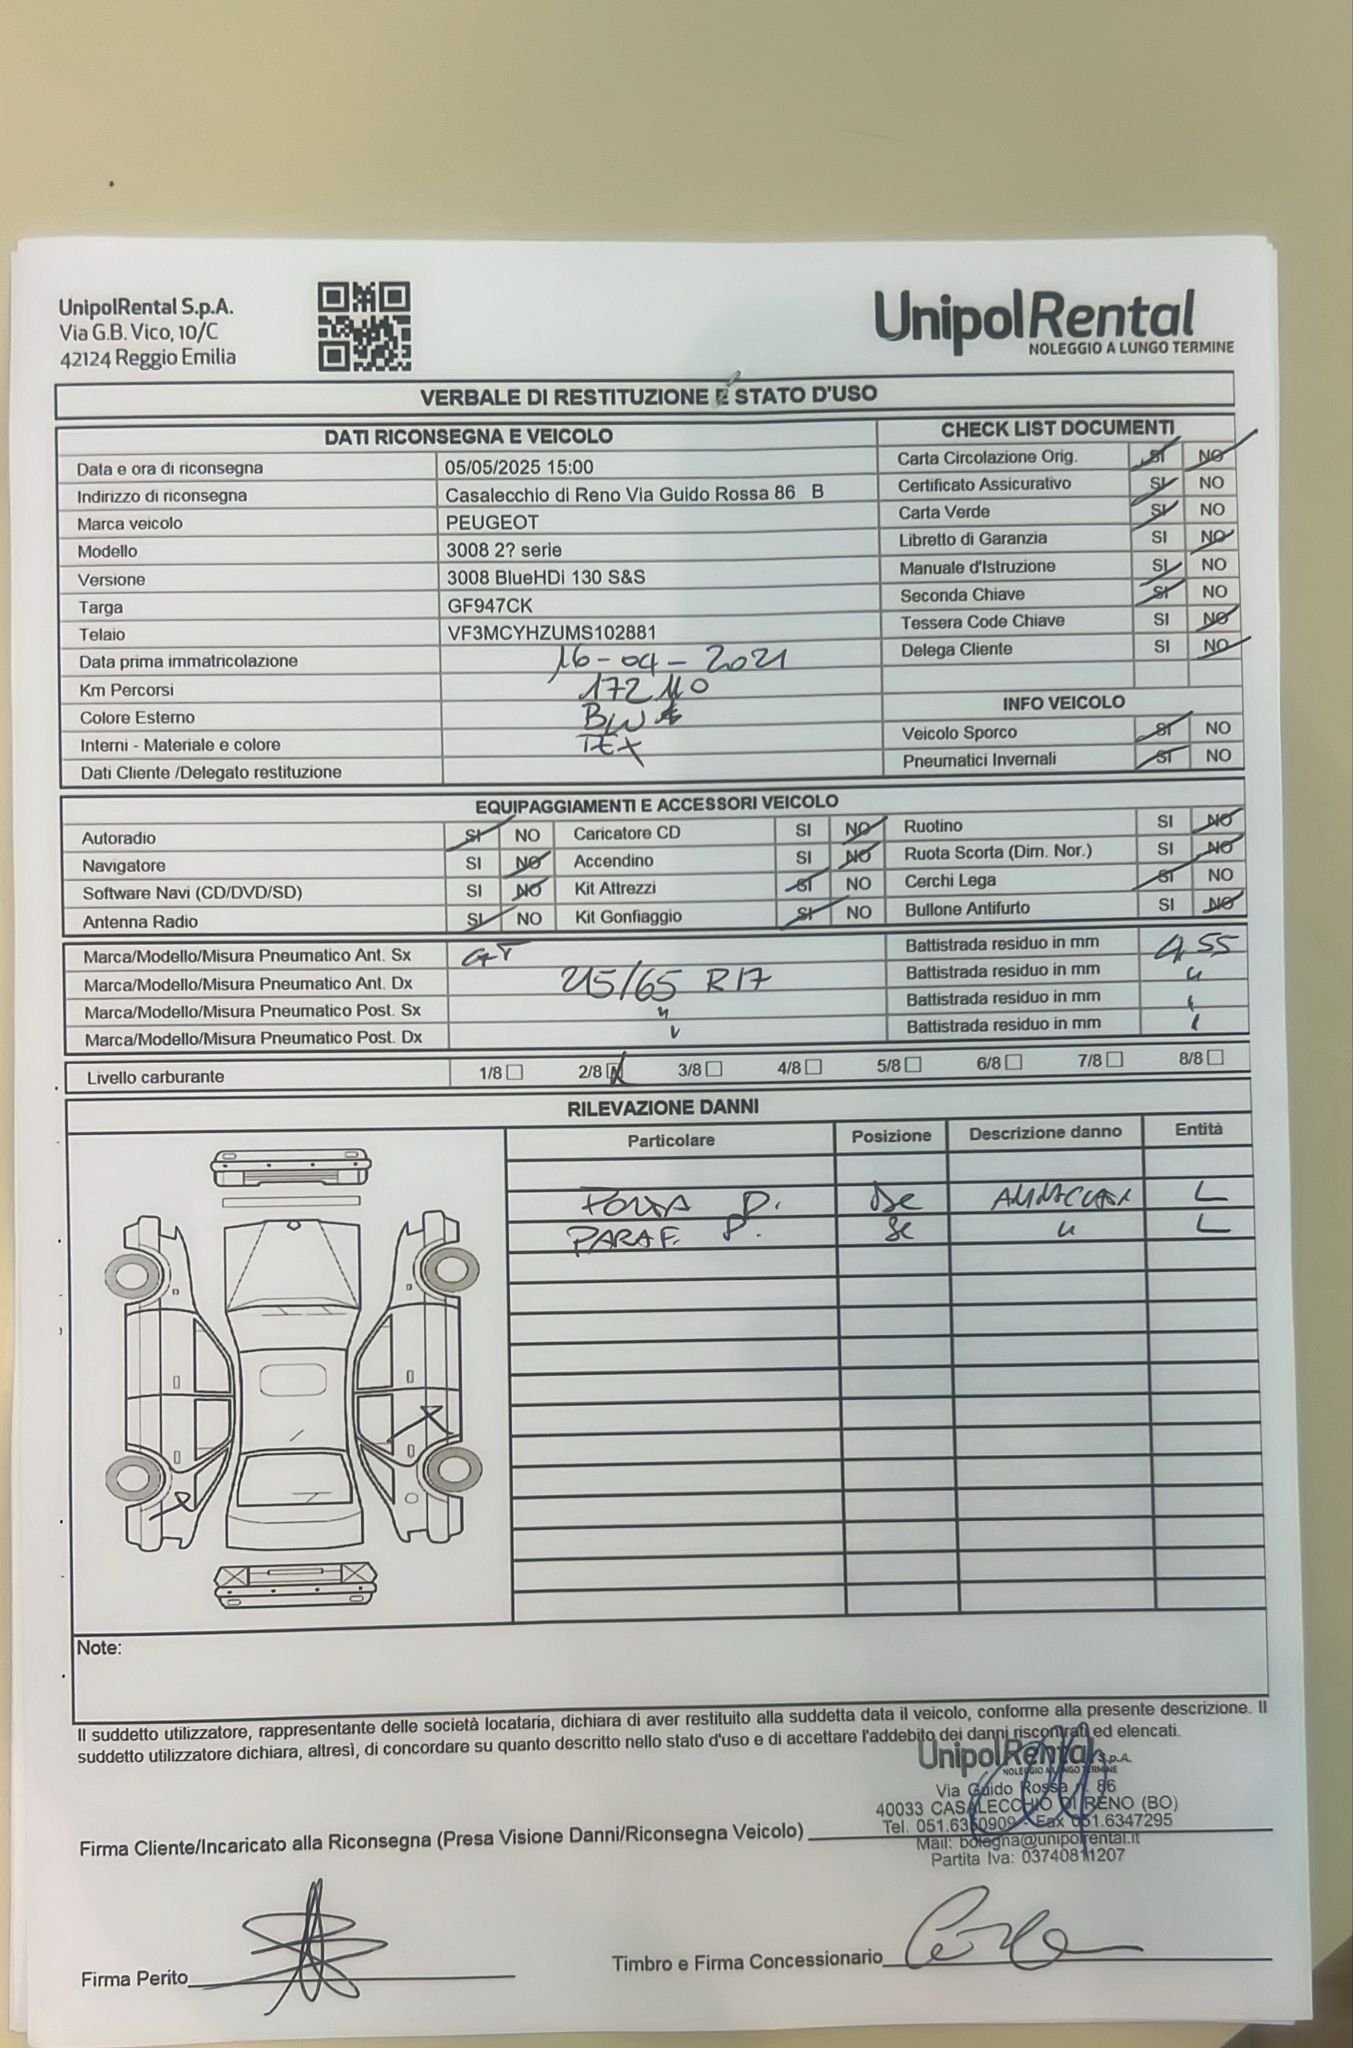 UnipolRental S.p.A.
Via G.B. Vico, 10/C
42124 Reggio Emilia
UnipolRental
NOLEGGIO A LUNGO TERMINE
VERBALE DI RESTITUZIONE E STATO D'USO
DATI RICONSEGNA E VEICOLO
Data e ora di riconsegna 05/05/2025 15:00
Indirizzo di riconsegna Casalecchio di Reno Via Guido Rossa 86 B
Marca veicolo PEUGEOT
Modello 3008 2? serie
Versione 3008 BlueHDi 130 S&S
Targa GF947CK
Telaio VF3MCYHZUMS102881
Data prima immatricolazione 16-04-2021
Km Percorsi 172110
Colore Esterno
Interni - Materiale e colore TEX
Dati Cliente /Delegato restituzione
CHECK LIST DOCUMENTI
Carta Circolazione Orig. SI NO
Certificato Assicurativo SI NO
Carta Verde SI NO
Libretto di Garanzia SI NO
Manuale d'Istruzione SI NO
Seconda Chiave SI NO
Tessera Code Chiave SI NO
Delega Cliente SI NO
INFO VEICOLO
Veicolo Sporco SI NO
Pneumatici Invernali SI NO
EQUIPAGGIAMENTI E ACCESSORI VEICOLO
Autoradio SI NO Caricatore CD SI NO Ruotino SI NO
Navigatore SI NO Accendino SI NO Ruota Scorta (Dim. Nor.) SI NO
Software Navi (CD/DVD/SD) SI NO Kit Attrezzi SI NO Cerchi Lega SI NO
Antenna Radio SI NO Kit Gonfiaggio SI NO Bullone Antifurto SI NO
Marca/Modello/Misura Pneumatico Ant. Sx GT Battistrada residuo in mm 4,55
Marca/Modello/Misura Pneumatico Ant. Dx 215/65 R17 Battistrada residuo in mm "
Marca/Modello/Misura Pneumatico Post. Sx " Battistrada residuo in mm
Marca/Modello/Misura Pneumatico Post. Dx Battistrada residuo in mm
Livello carburante 1/8 2/8 3/8 4/8 5/8 6/8 7/8 8/8
RILEVAZIONE DANNI
Particolare Posizione Descrizione danno Entità
P. L
PARAF. P. " L
Note:
Il suddetto utilizzatore, rappresentante delle società locataria, dichiara di aver restituito alla suddetta data il veicolo, conforme alla presente descrizione. Il
suddetto utilizzatore dichiara, altresì, di concordare su quanto descritto nello stato d'uso e di accettare l'addebito dei danni riscontrati ed elencati.
UnipolRental S.p.A.
NOLEGGIO A LUNGO TERMINE
Via Guido Rossa n. 86
40033 CASALECCHIO DI RENO (BO)
Tel. 051.6350909 - Fax 051.6347295
Mail: bologna@unipolrental.it
Partita Iva: 03740811207
Firma Cliente/Incaricato alla Riconsegna (Presa Visione Danni/Riconsegna Veicolo)
Firma Perito
Timbro e Firma Concessionario